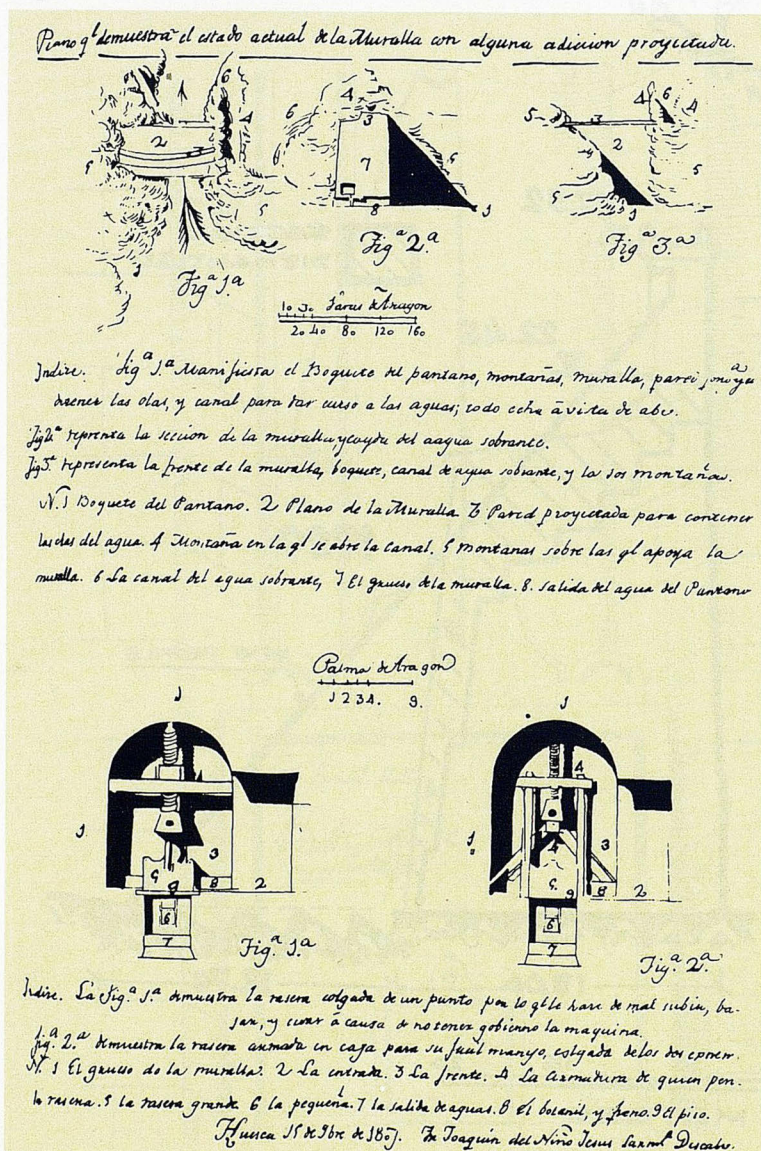 Plano ql. demuestra el estado actual de la Muralla con alguna adicion proyectada.
6
4
6
4
6
4
3
5
3
2
3
2
7
5
5
5
8
1
Figa 1.a
Figa 2.a
Figa 3.a
10 30 Varas de Aragon
20 40 80 120 160
Indize. Figa 1.a Manifiesta el Boquete del pantano, montañas, muralla, pared
las olas, y canal para dar curso a las aguas; todo a vista de
Fig 2.a reprenta la seccion de la muralla, y del aagua sobrante.
Fig 3.a representa la frente de la muralla, boquete, canal de agua sobrante, y la dos montañas.
N. 1 Boquete del Pantano. 2 Plano de la Muralla 3 Pared proyectada para contener
las olas del agua. 4 Montaña en la ql se abre la canal. 5 montanas sobre las ql apoya la
muralla. 6 La canal del agua sobrante, 7 El grueso de la muralla. 8. salida del agua del Pantano
Palmo de Aragon
1 2 3 4. 9.
1
1
1
3
5
8
2
9
6
7
Fig.a 1.a
1
4
3
5
9
8
2
6
7
Fig.a 2.a
Indize. La Fig.a 1.a demuestra la rasera colgada de un punto por lo ql se hace de mal subir, ba-
jar, y cerrar à causa de no tener gobierno la maquina.
fig.a 2.a demuestra la rasera armada en caja para su facil manejo, colgada de los dos
N. 1 El grueso de la muralla. 2 La entrada. 3 La frente. 4 La armadura de quien pen.
la rasera. 5 la rasera grande. 6 la pequeña. 7 la salida de aguas. 8 el y freno. 9 El piso.
Huesca 15 de 9bre de 1807. Fr Joaquin del Niño Jesus Carml. Descalz.